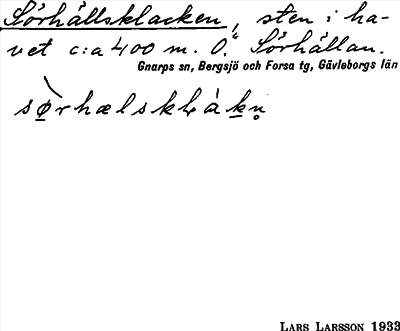 Sörhällsklacken, sten i ha-
vet c:a 400 m. O. Sörhällan.
Gnarps sn, Bergsjö och Forsa tg, Gävleborgs län
LARS LARSSON 1933